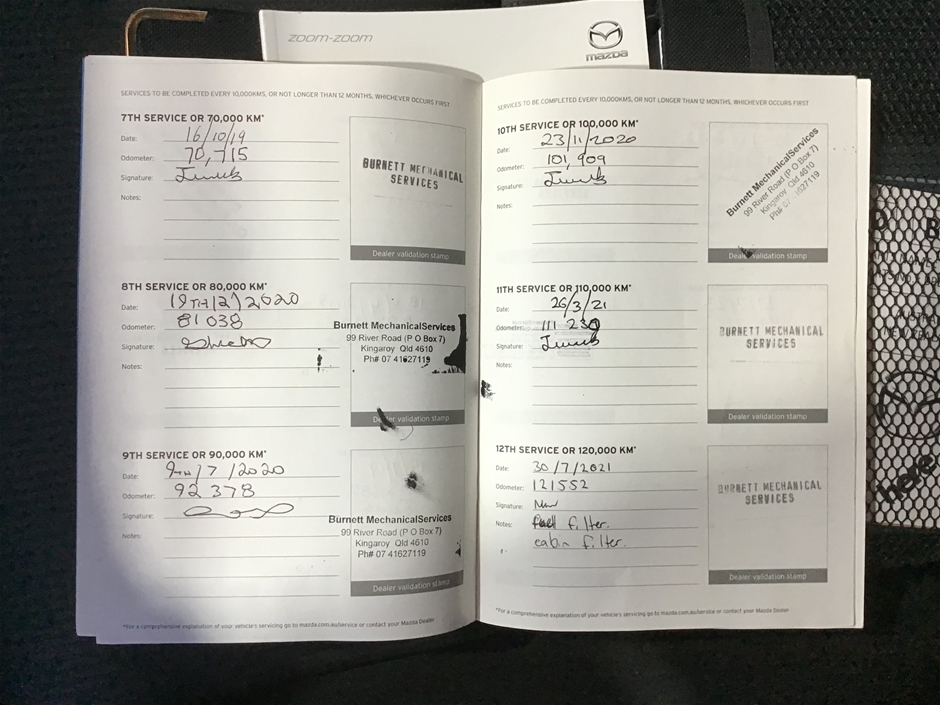 ZOOM-ZOOM
mazda
SERVICES TO BE COMPLETED EVERY 10,000KMS, OR NOT LONGER THAN 12 MONTHS, WHICHEVER OCCURS FIRST
7TH SERVICE OR 70,000 KM*
Date: 16/10/19
Odometer: 70,715
Signature:
Notes:
BURNETT MECHANICAL
SERVICES
Dealer validation stamp
8TH SERVICE OR 80,000 KM*
Date: 19TH/2/2020
Odometer: 81038
Signature:
Notes:
Burnett MechanicalServices
99 River Road (P O Box 7)
Kingaroy Qld 4610
Ph# 07 41627119
Dealer validation stamp
9TH SERVICE OR 90,000 KM*
Date: 9TH/7/2020
Odometer: 92 378
Signature:
Notes:
Burnett MechanicalServices
99 River Road (P O Box 7)
Kingaroy Qld 4610
Ph# 07 41627119
Dealer validation stamp
*For a comprehensive explanation of your vehicle's servicing go to mazda.com.au/service or contact your Mazda Dealer
SERVICES TO BE COMPLETED EVERY 10,000KMS, OR NOT LONGER THAN 12 MONTHS, WHICHEVER OCCURS FIRST
10TH SERVICE OR 100,000 KM*
Date: 23/11/2020
Odometer: 101,909
Signature:
Notes:
Burnett MechanicalServices
99 River Road (P O Box 7)
Kingaroy Qld 4610
Ph# 07 41627119
Dealer validation stamp
11TH SERVICE OR 110,000 KM*
Date: 26/3/21
Odometer: 111 239
Signature:
Notes:
BURNETT MECHANICAL
SERVICES
Dealer validation stamp
12TH SERVICE OR 120,000 KM*
Date: 30/7/2021
Odometer: 121552
Signature:
Notes: fuel filter.
cabin filter.
BURNETT MECHANICAL
SERVICES
Dealer validation stamp
*For a comprehensive explanation of your vehicle's servicing go to mazda.com.au/service or contact your Mazda Dealer